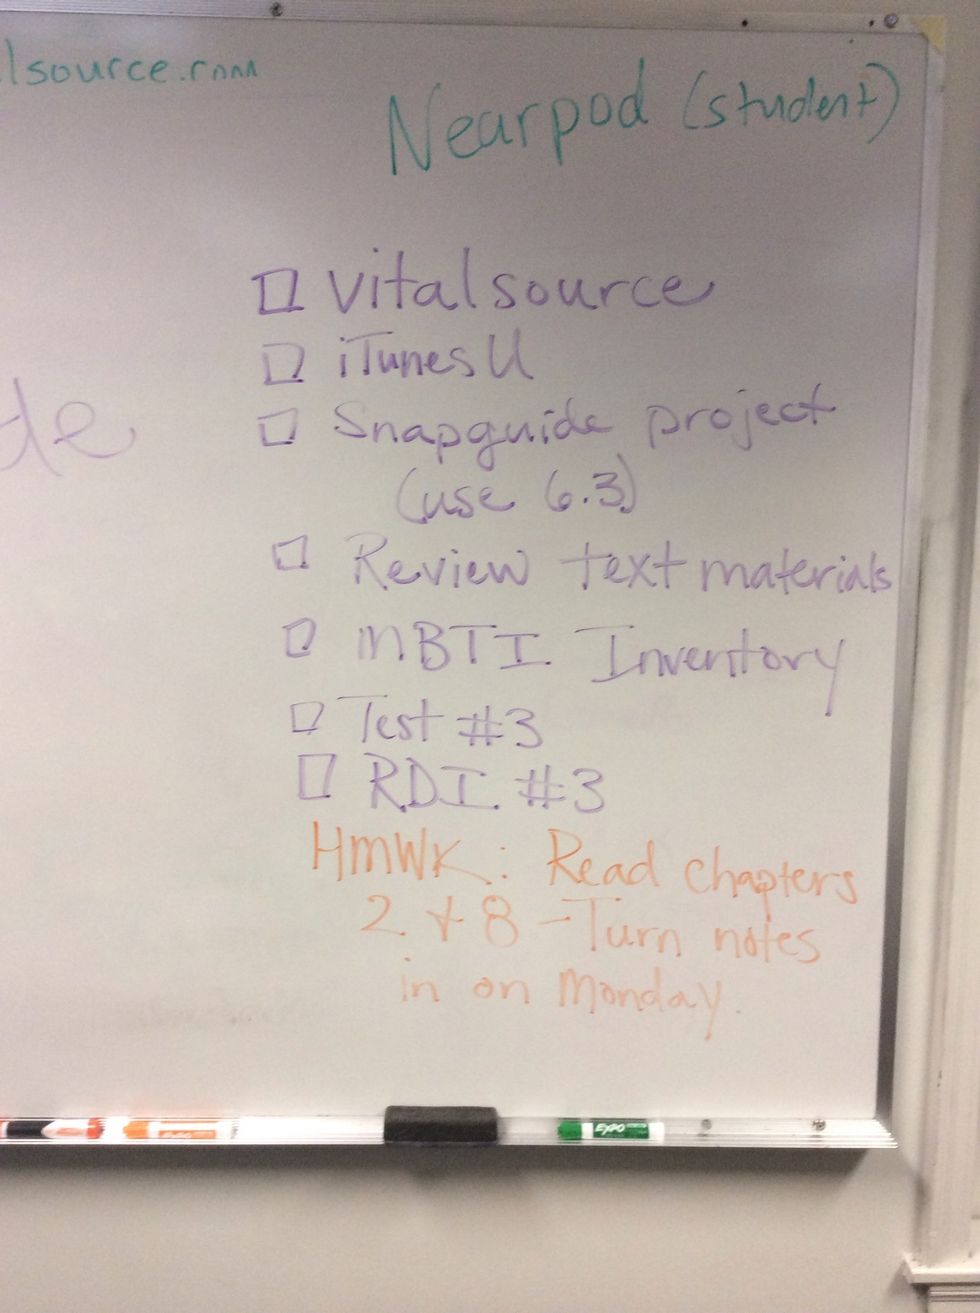 lsource.com
Nearpod (student)
vitalsource
iTunes U
Snapguide project
(use 6.3)
Review text materials
MBTI Inventory
Test #3
RDI #3
de
HmWK: Read chapters
2 + 8 - Turn notes
in on Monday.
EXPO